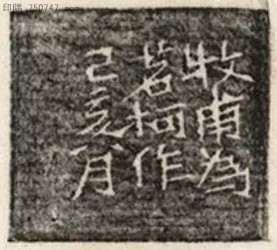 牧甫为
茗柯作
己亥八月
印谱 250747.com